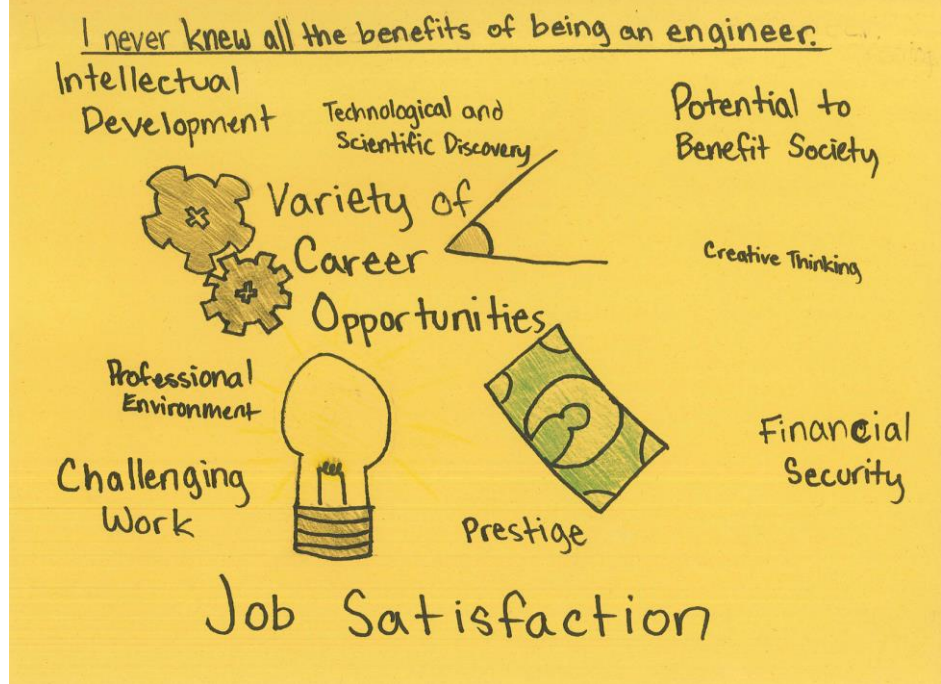 I never knew all the benefits of being an engineer.
Intellectual
Development
Technological and
Scientific Discovery
Potential to
Benefit Society
Variety of
Career
Opportunities
Creative Thinking
Professional
Environment
Financial
Security
Challenging
Work
Prestige
Job Satisfaction